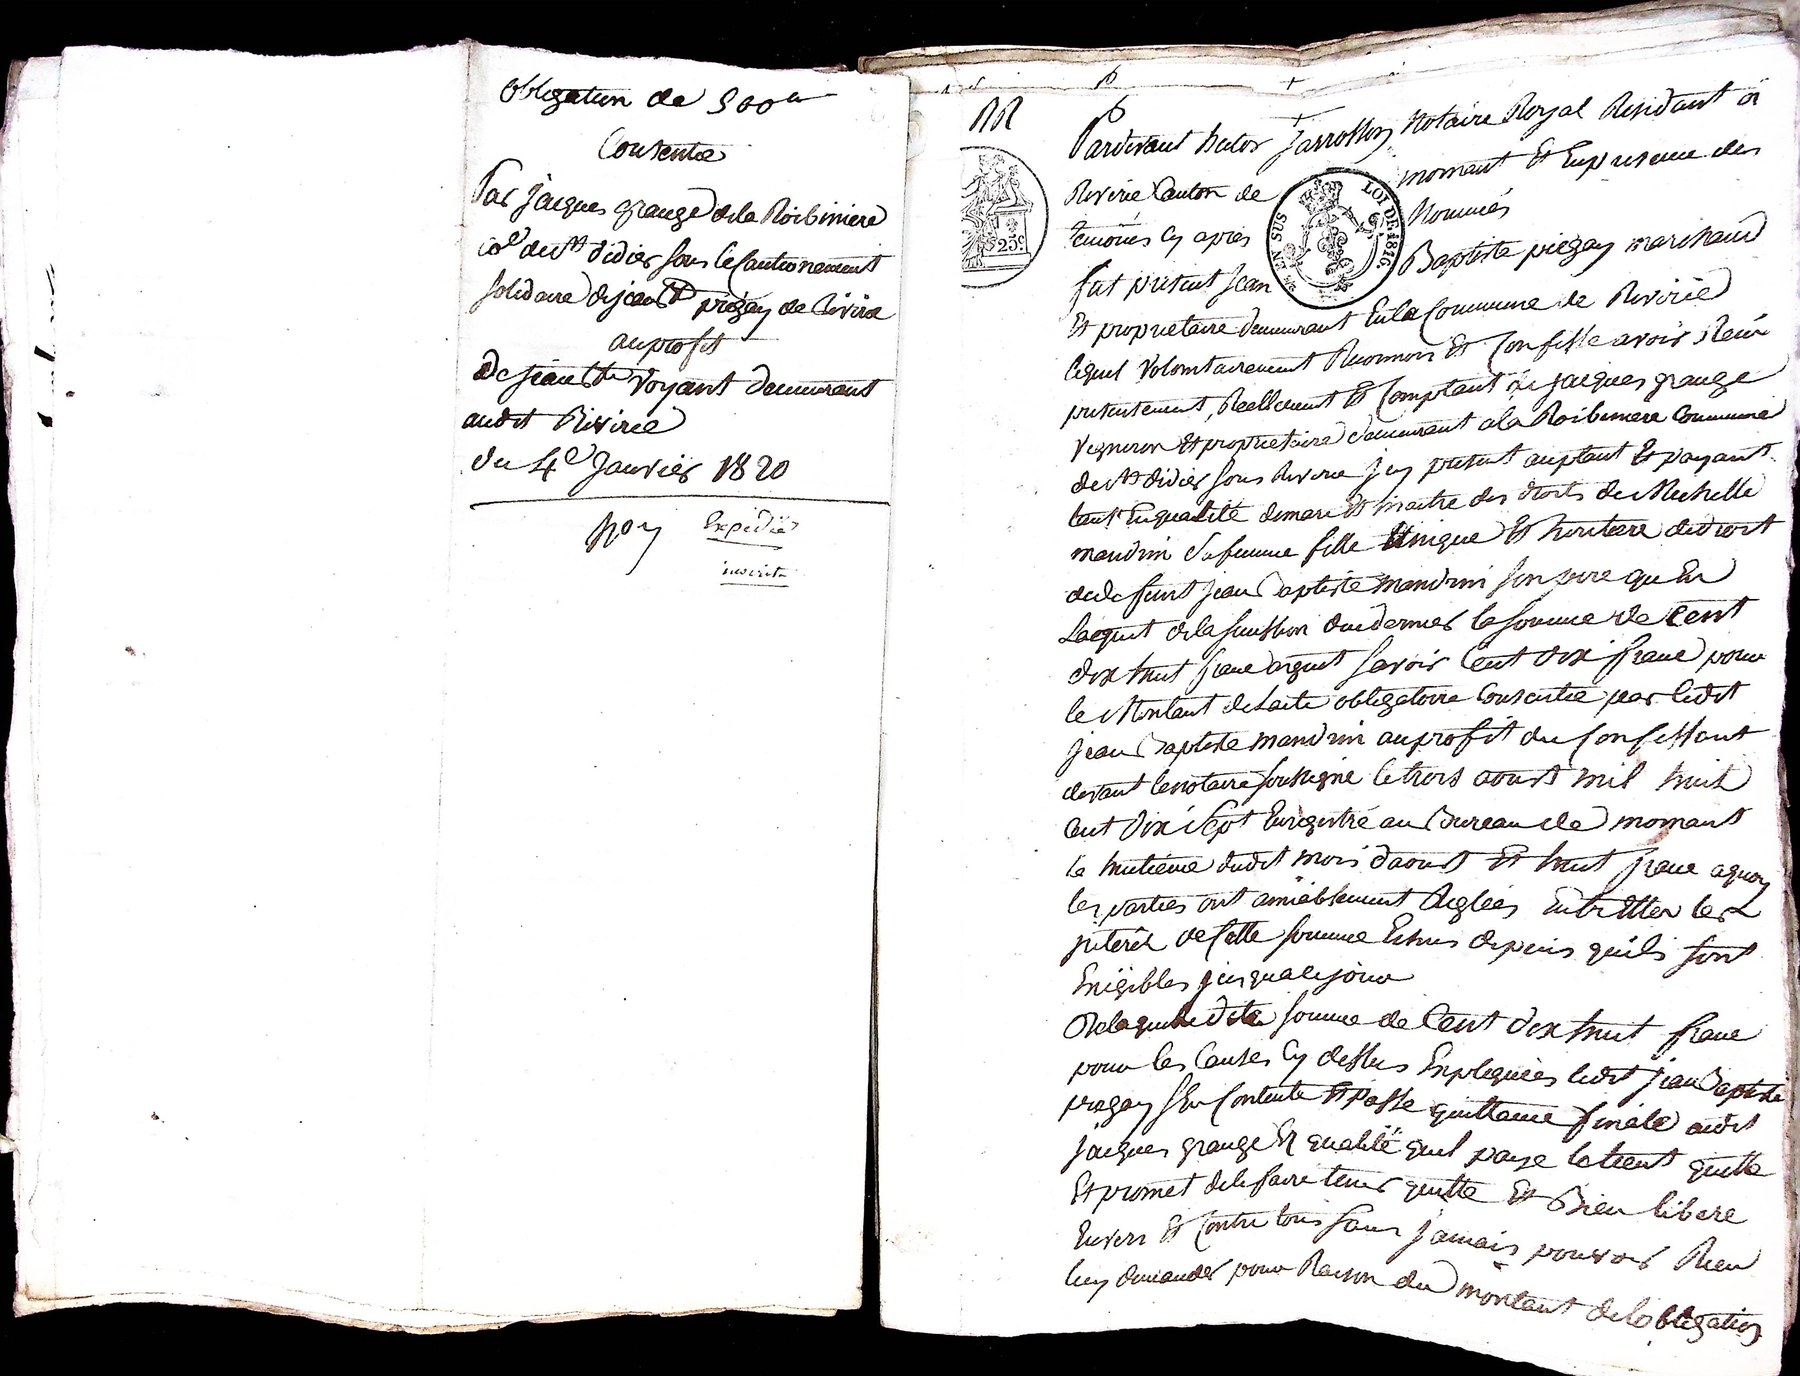 Obligation de 500 lt
Consentie
Par jacques grange de la Roibiniere
co.e de St didier sous le Cautionement
solidaire de jean Bte piégay de Rivirie
au profit
De jean Bte Voyant demeurant
audit Rivirie
du 4e Janvier 1820
Expédiée
inscrite
RR
25c.
EN SUS
LOI DE 1816.
Pardevant hector Jarrosson Notaire Royal Résidant à
Rivirie Canton de mornant Et En presence des
temoins cy apres Nommés
fut présent Jean Baptiste piegay marchand
Et proprietaire demeurant En la Commune de Rivirie
lequel Volontairement Reconnois Et Confesse avoir Reçu
présentement, Réellement Et Comptant de jacques grange
Vigneron Et proprietaire demeurant a la Roibiniere Commune
de St didier sous Rivirie j cy présent acceptant Et payant
tant En qualité de mari Et maitre des droits de Michelle
mandrin sa femme fille Unique Et héritiere de droit
de defunt jean Baptiste mandrin son pere qu En
Lacquit de la succession du dernier la somme de Cent
dix huit franc argent savoir Cent dix franc pour
le Montant de Lacte obligatoire Consentie par ledit
jean Baptiste mandrin au profit du Confessant
devant le notaire soussigné le trois aoust mil huit
Cent dix sept Enregistré au Bureau de mornant
le huitieme dudit mois d'aoust Et huit franc a quoy
les parties ont amiablement Reglées Entr Elles les
jnterêt de Cette somme Echus depuis qu'ils sont
Exigibles jusqua ce jour
De laquelle dite somme de Cent dix huit franc
pour les Causes Cy dessus Expliquées ledit jean Baptiste
piegay s En Contente Et passe quittance finale audit
jacques grange En qualité quil paye le tient quitte
Et promet de le faire tenir quitte Et Bien libéré
Envers Et Contre tous sans jamais pouvoir Rien
luy demander pour Raison du montant de lobligation